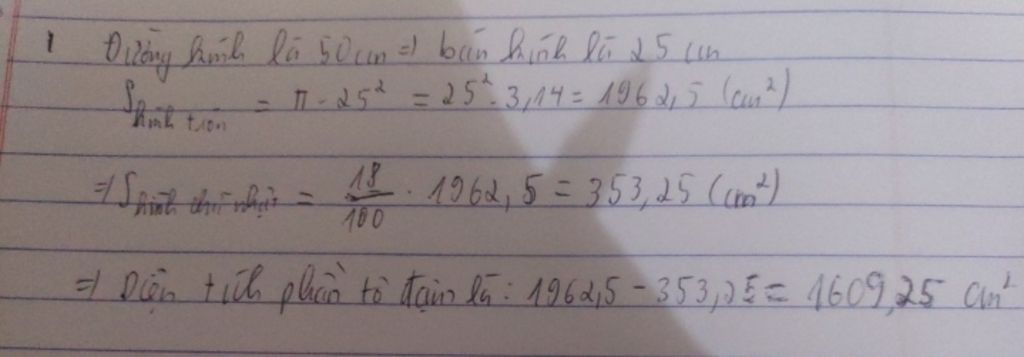 1 Đường kính là 50cm => bán kính là 25 cm
S hình tròn = π . 25² = 25² . 3,14 = 1962,5 (cm²)
=> S hình chữ nhật = 18/100 . 1962,5 = 353,25 (cm²)
=> Diện tích phần tô đậm là: 1962,5 - 353,25 = 1609,25 cm²